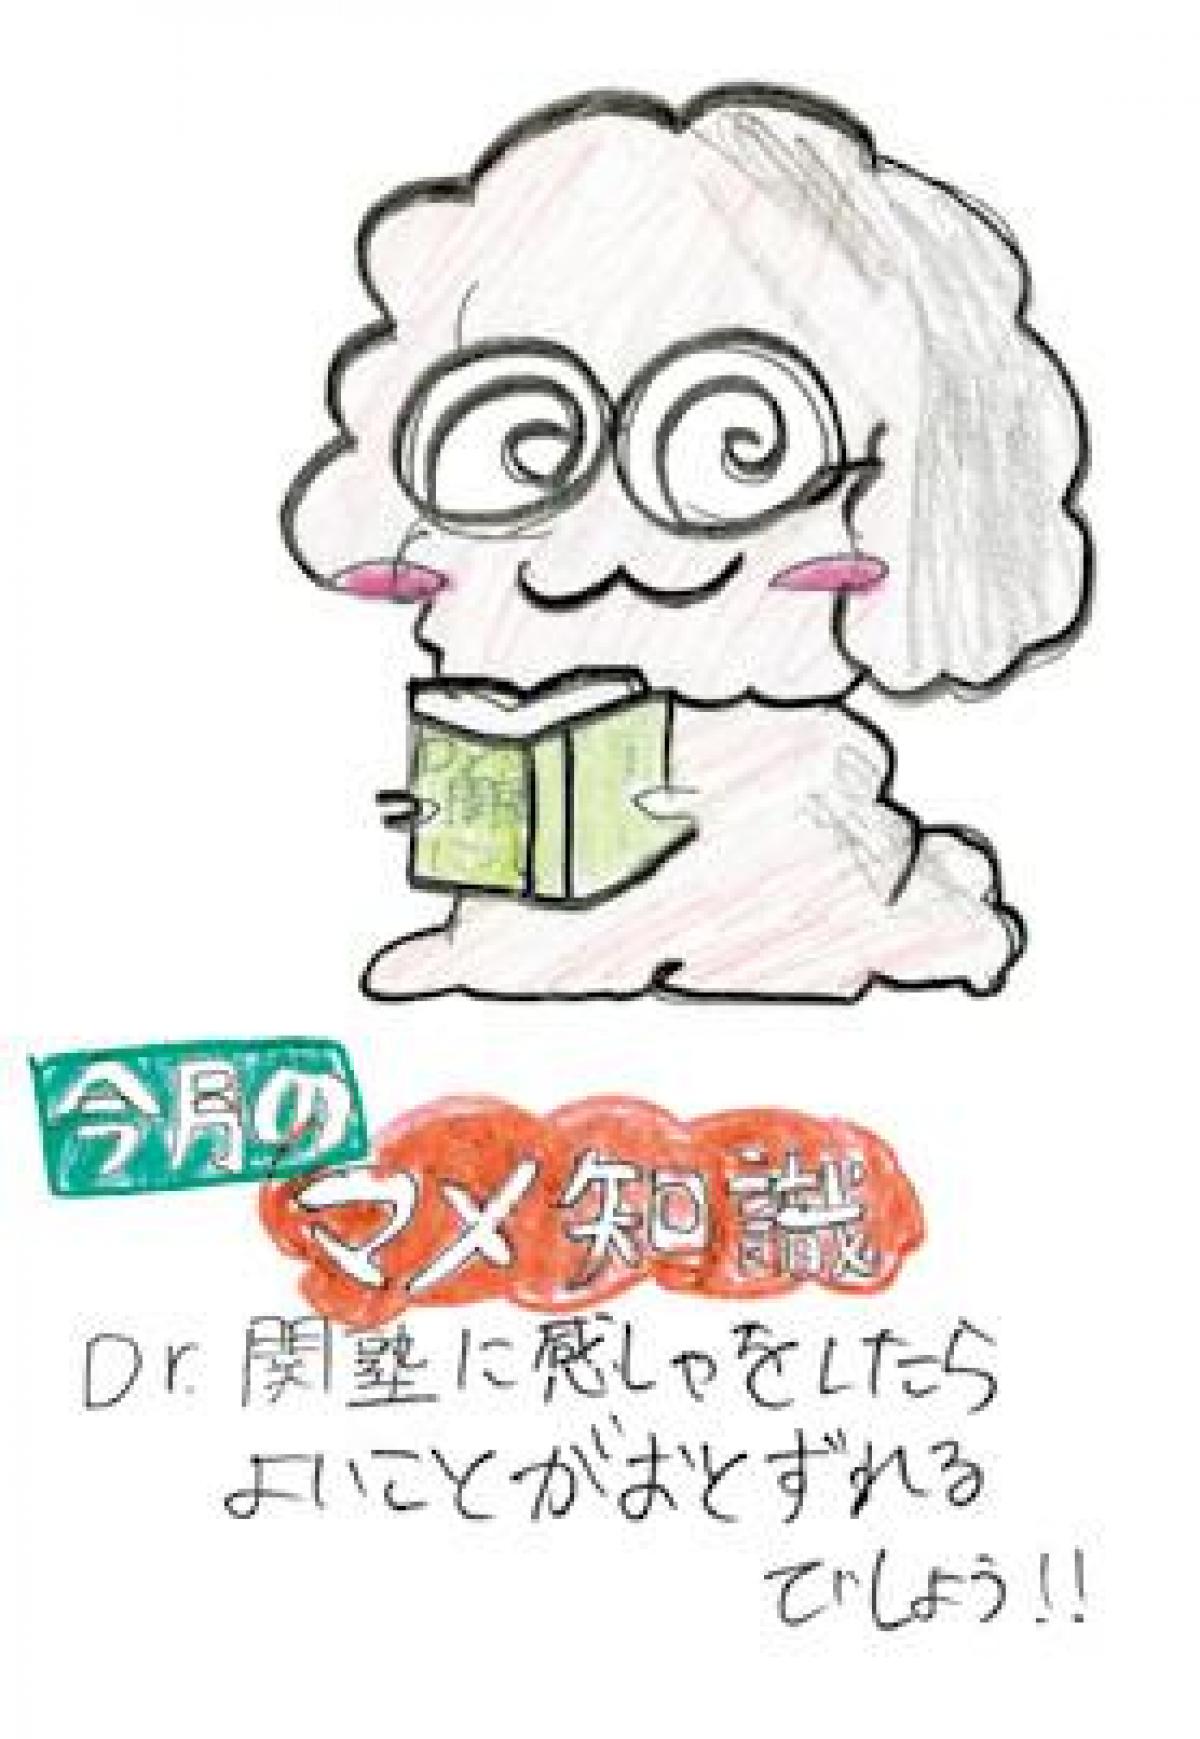 今月の
マメ知識
Dr.関塾に感しゃをしたら
よいことがおとずれる
でしょう!!